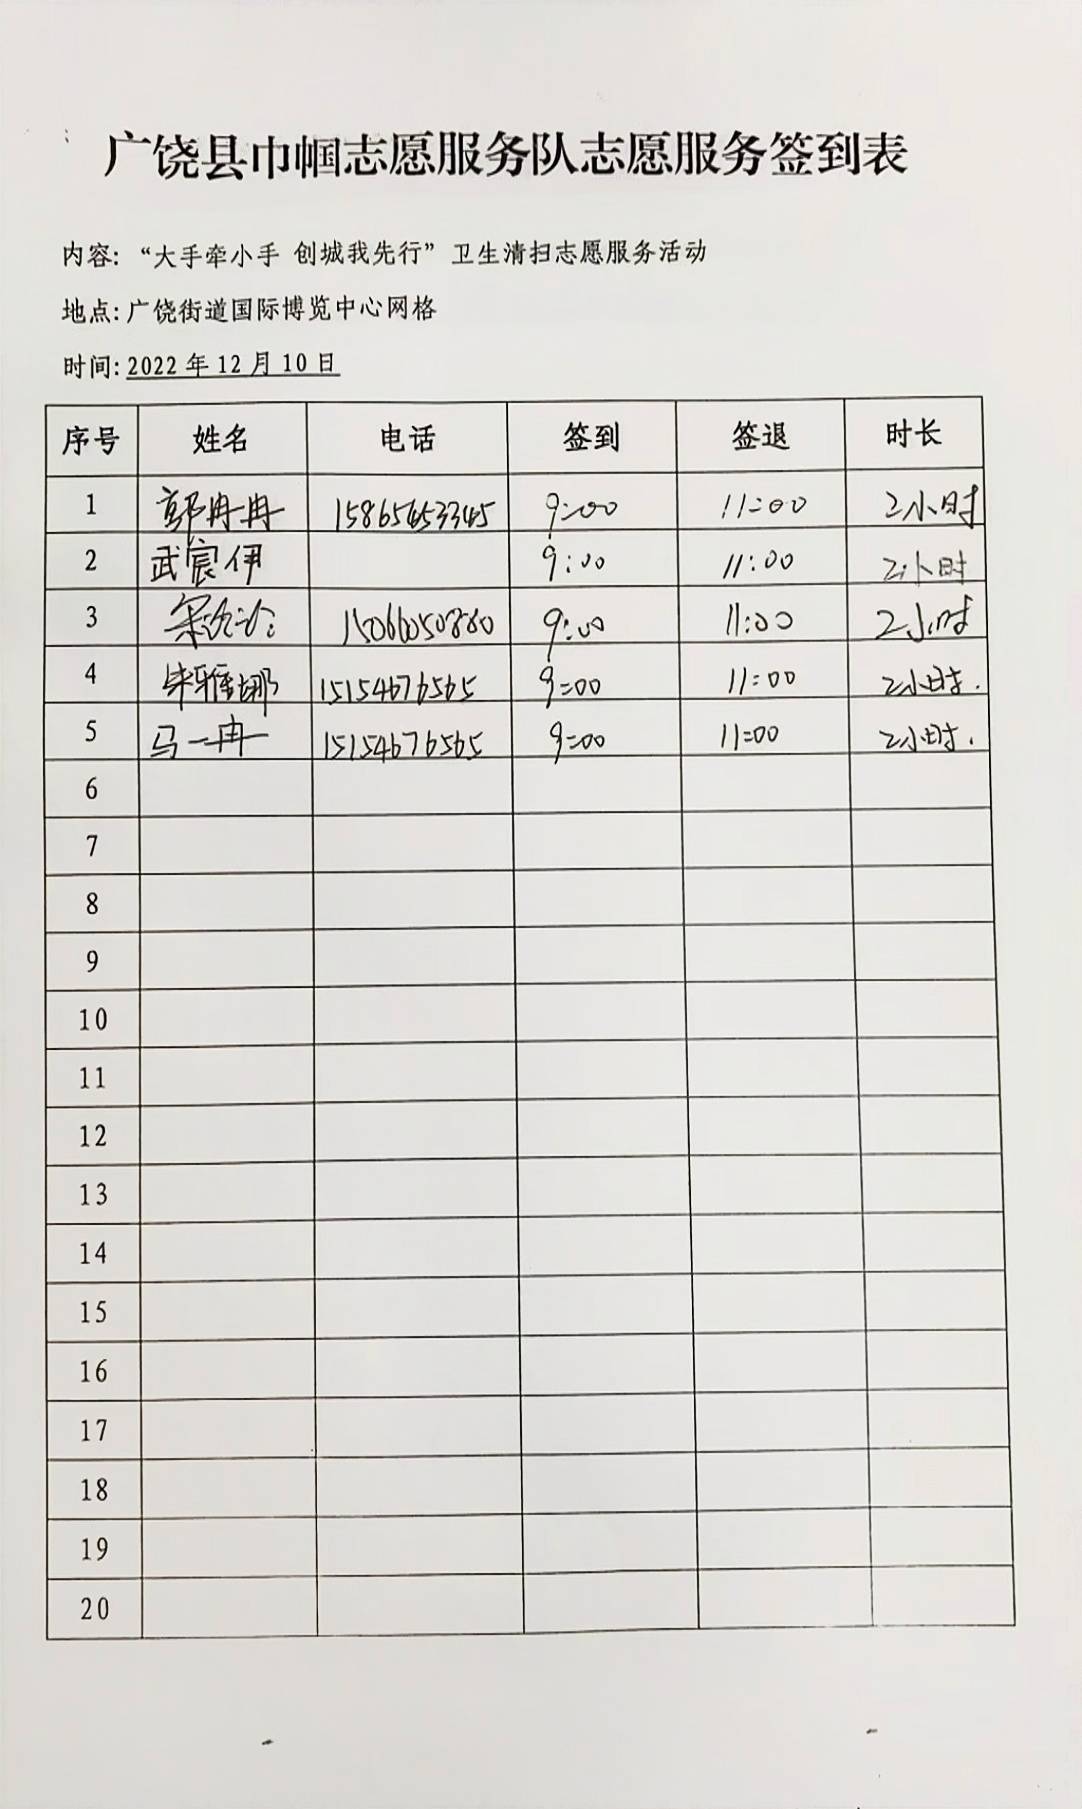 广饶县巾帼志愿服务队志愿服务签到表
内容：“大手牵小手 创城我先行”卫生清扫志愿服务活动
地点：广饶街道国际博览中心网格
时间：2022 年 12 月 10 日
序号 姓名 电话 签到 签退 时长
1 郭冉冉 15865453345 9:00 11:00 2小时
2 武宸伊 9:00 11:00 2小时
3 15066050880 9:00 11:00 2小时
4 朱雅娜 15154676565 9:00 11:00 2小时.
5 马一冉 15154676565 9:00 11:00 2小时.
6
7
8
9
10
11
12
13
14
15
16
17
18
19
20